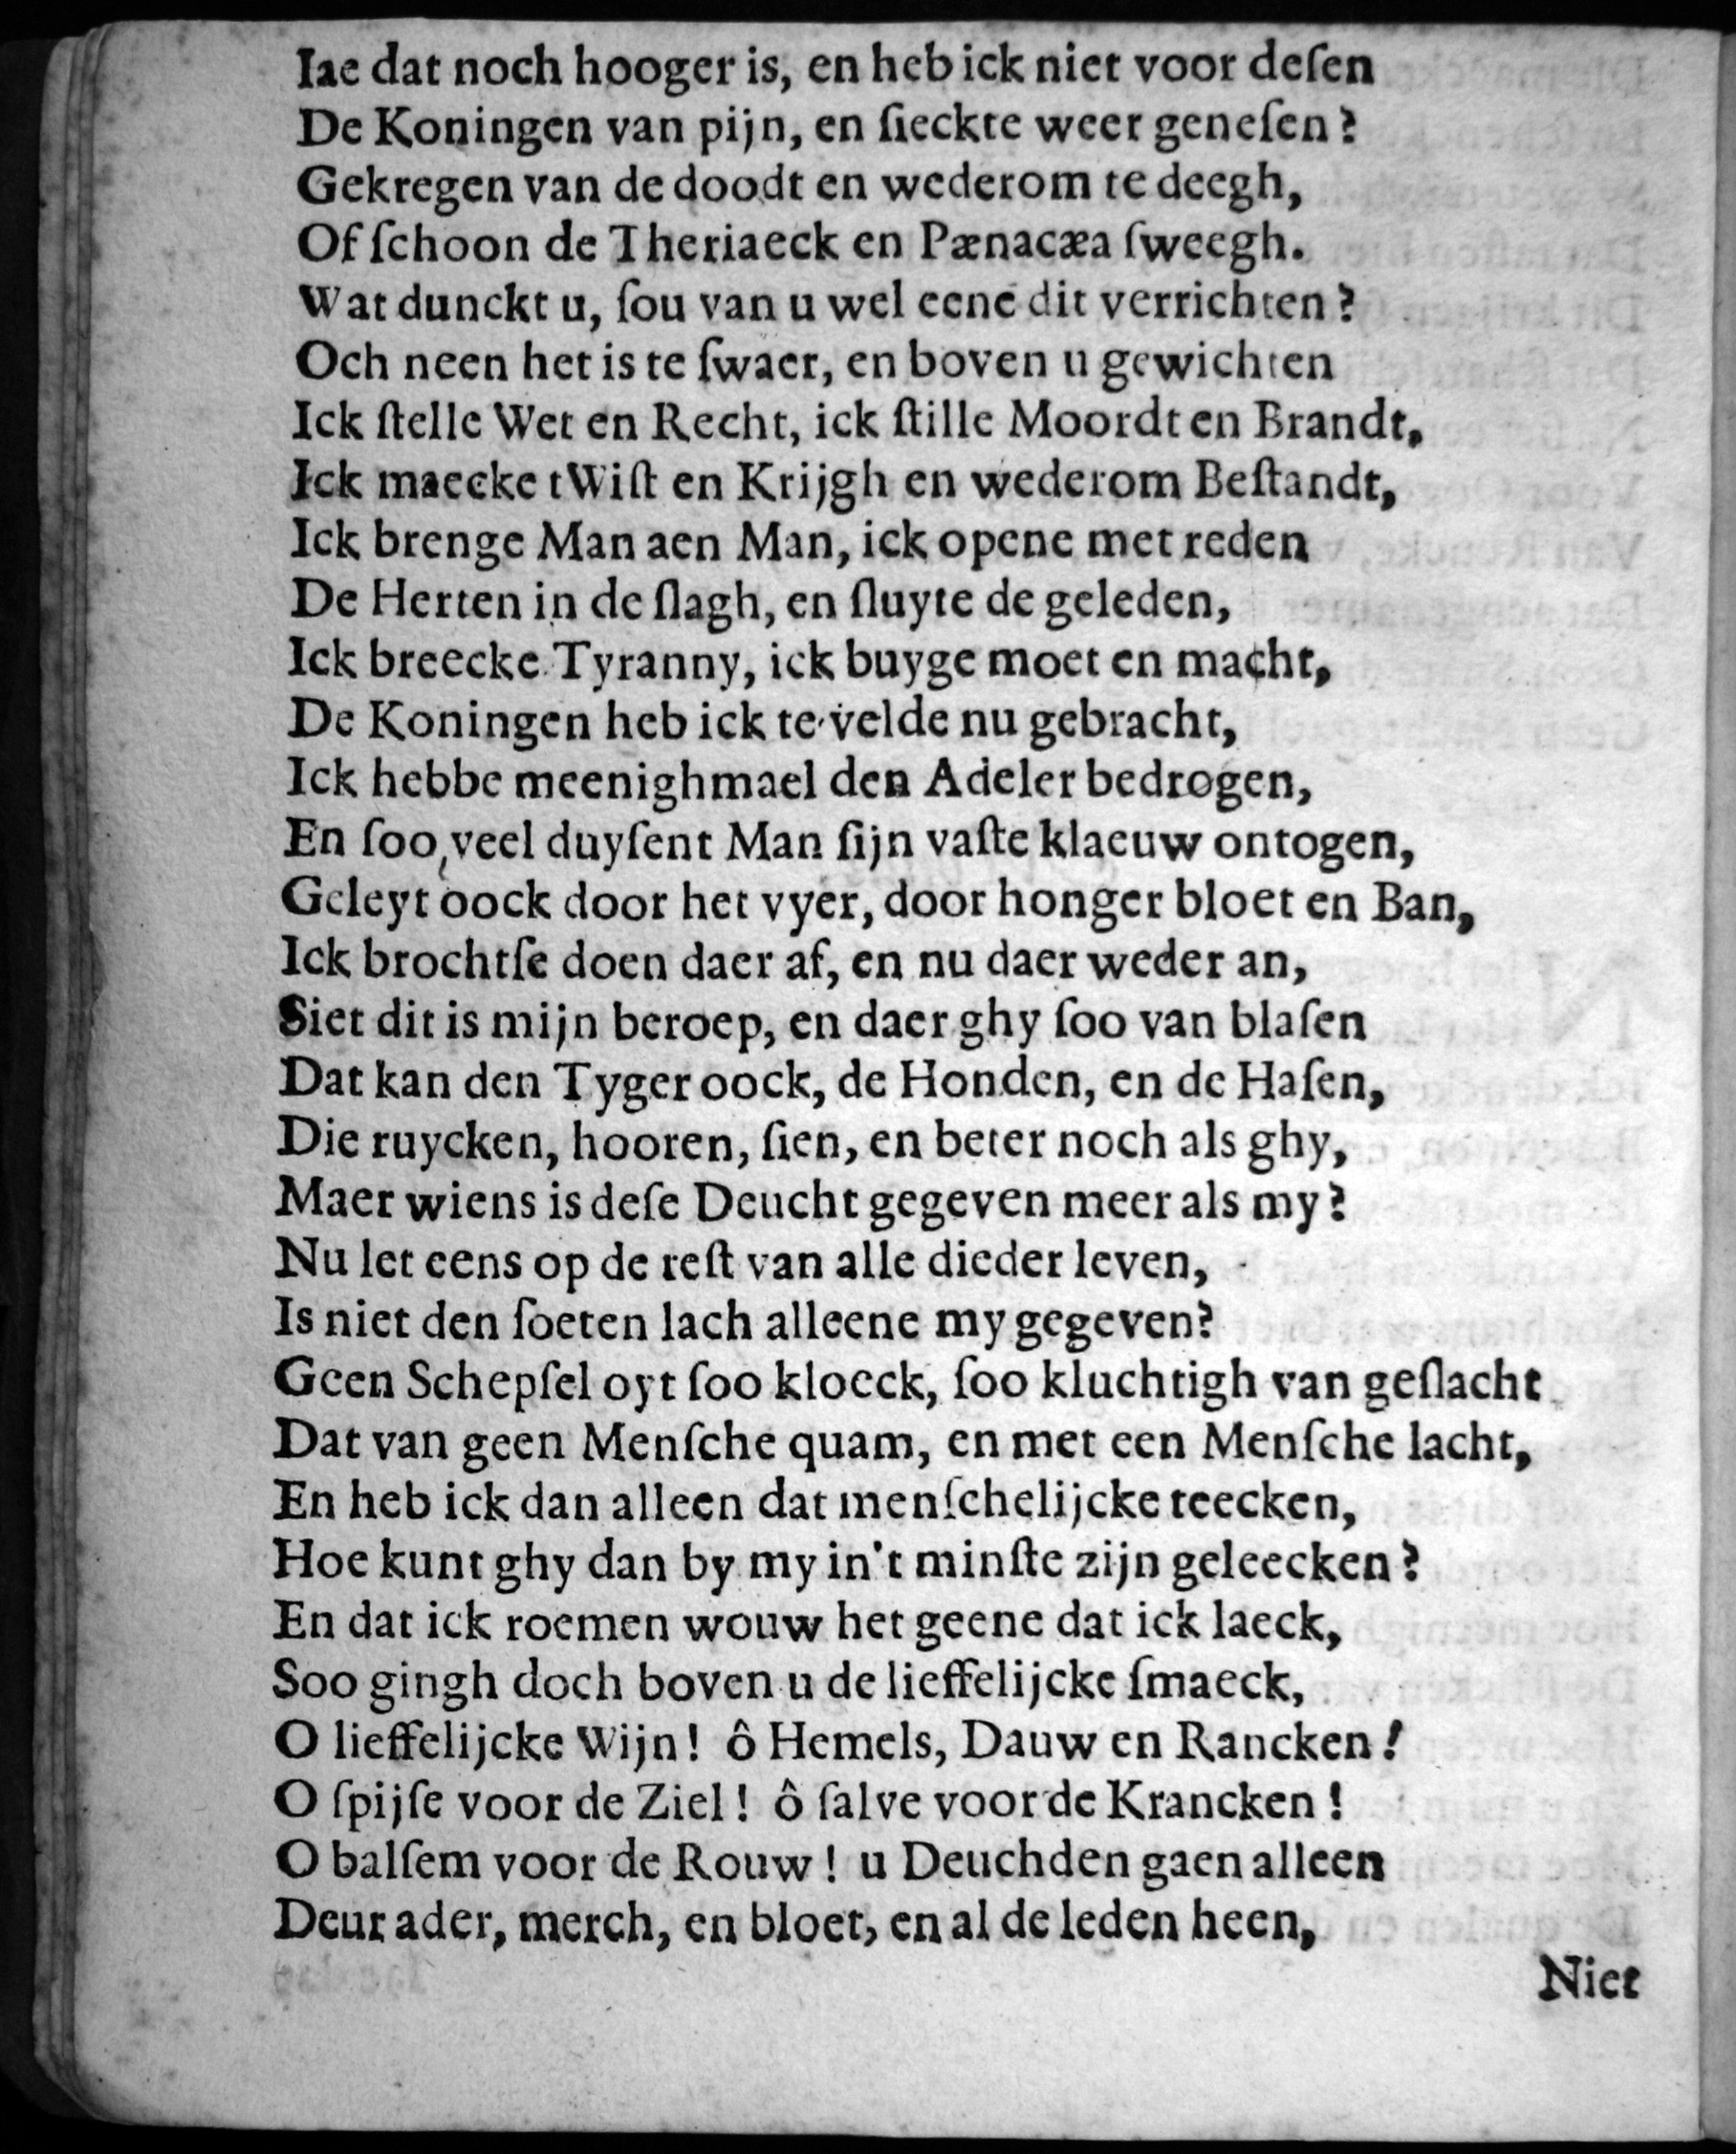 Iae dat noch hooger is, en heb ick niet voor deſen
De Koningen van pijn, en ſieckte weer geneſen?
Gekregen van de doodt en wederom te deegh,
Of ſchoon de Theriaeck en Pænacæa ſweegh.
Wat dunckt u, ſou van u wel eene dit verrichten?
Och neen het is te ſwaer, en boven u gewichten
Ick ſtelle Wet en Recht, ick ſtille Moordt en Brandt,
Ick maecke tWiſt en Krijgh en wederom Beſtandt,
Ick brenge Man aen Man, ick opene met reden
De Herten in de ſlagh, en ſluyte de geleden,
Ick breecke Tyranny, ick buyge moet en macht,
De Koningen heb ick te velde nu gebracht,
Ick hebbe meenighmael den Adeler bedrogen,
En ſoo veel duyſent Man ſijn vaſte klaeuw ontogen,
Geleyt oock door het vyer, door honger bloet en Ban,
Ick brochtſe doen daer af, en nu daer weder an,
Siet dit is mijn beroep, en daer ghy ſoo van blaſen
Dat kan den Tyger oock, de Honden, en de Haſen,
Die ruycken, hooren, ſien, en beter noch als ghy,
Maer wiens is deſe Deucht gegeven meer als my?
Nu let eens op de reſt van alle dieder leven,
Is niet den ſoeten lach alleene my gegeven?
Geen Schepſel oyt ſoo kloeck, ſoo kluchtigh van geſlacht
Dat van geen Menſche quam, en met een Menſche lacht,
En heb ick dan alleen dat menſchelijcke teecken,
Hoe kunt ghy dan by my in't minſte zijn geleecken?
En dat ick roemen wouw het geene dat ick laeck,
Soo gingh doch boven u de lieffelijcke ſmaeck,
O lieffelijcke Wijn! ô Hemels, Dauw en Rancken!
O ſpijſe voor de Ziel! ô ſalve voor de Krancken!
O balſem voor de Rouw! u Deuchden gaen alleen
Deur ader, merch, en bloet, en al de leden heen,
Niet